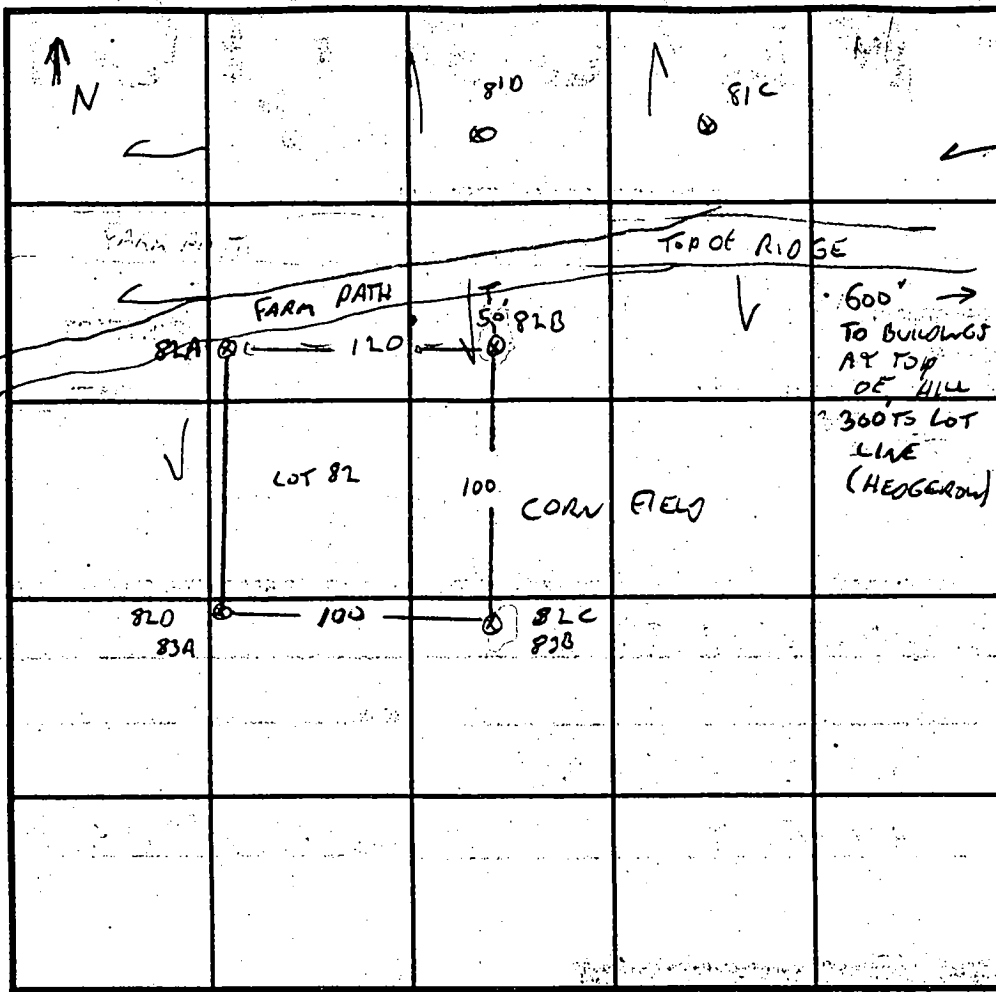 N
81D
81C
TOP OF RIDGE
FARM PATH
50' 82B
600' →
TO BUILDINGS
AT TOP
OF HILL
300 TO LOT
LINE
(HEDGEROW)
82A
120
LOT 82
100
CORN FIELD
82D
83A
100
82C
83B